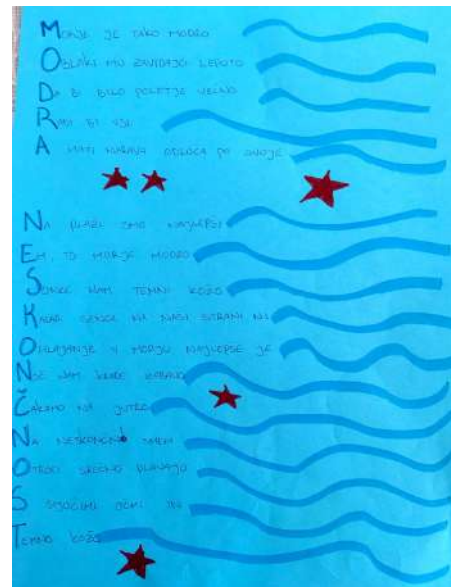 MORJE JE TAKO MODRO
OBLAKI MU ZAVIDAJO LEPOTO
DA BI BILO POLETJE VEČNO
RADI BI VSI
A MATI NARAVA ODLOČA PO SVOJE
NA PLAŽI SMO NAJLEPŠI
EM, TO MORJE MODRO
SONCE NAM TEMNI KOŽO
KADAR SENCE NA NAŠI STRANI NI
OHLAJANJE V MORJU NAJLEPŠE JE
NOČ NAM KRADE
ČAKAMO NA JUTRO
NA NESKONČNI
OTROCI SREČNO PLAVAJO
S SIJOČIMI
TEMNO KOŽO